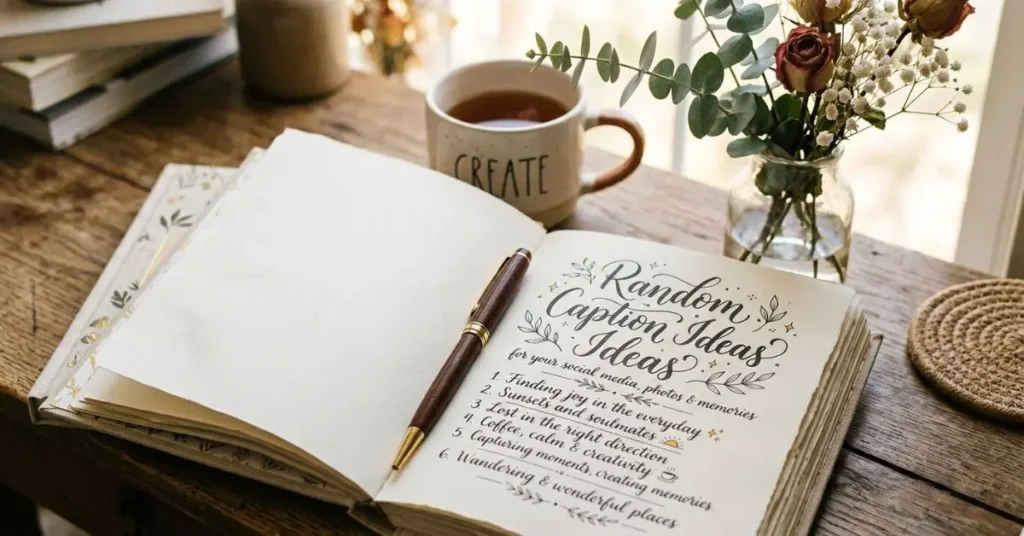 CREATE
Random
Caption Ideas
Ideas
for your social media, photos & memories
1. Finding joy in the everyday
2. Sunsets and soulmates
3. Lost in the right direction
4. Coffee, calm & creativity
5. Capturing moments, creating memories
6. Wandering & wonderful places